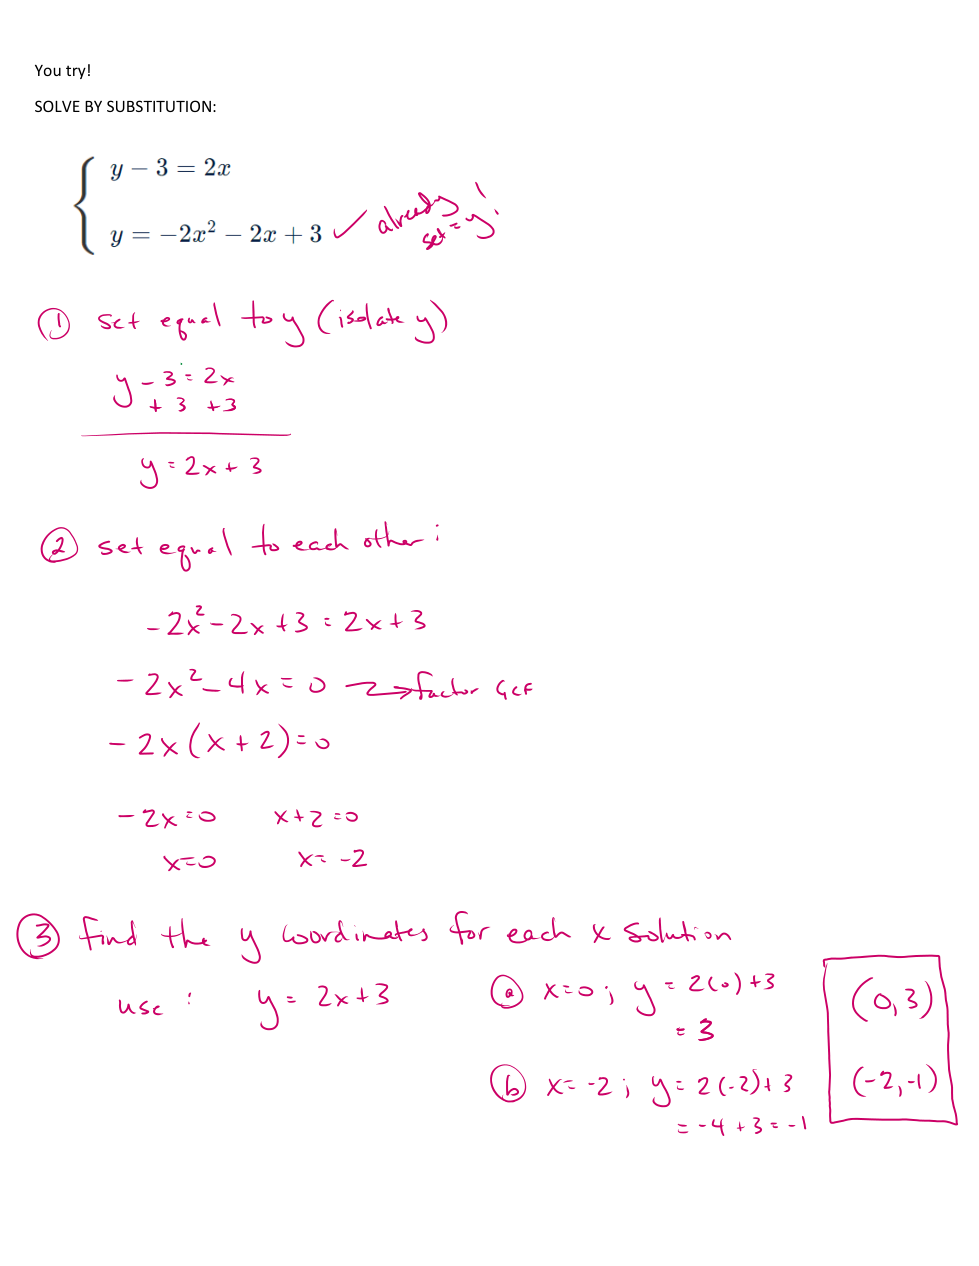 You try!
SOLVE BY SUBSTITUTION:
y − 3 = 2x
y = −2x² − 2x + 3 ✓ already set = y!
① set equal to y (isolate y)
y - 3 = 2x
+ 3 +3
y = 2x + 3
② set equal to each other:
-2x² - 2x + 3 = 2x + 3
-2x² - 4x = 0 → factor GCF
-2x(x + 2) = 0
-2x = 0 x + 2 = 0
x = 0 x = -2
③ find the y coordinates for each x solution
use: y = 2x + 3
ⓐ x = 0; y = 2(0) + 3
= 3
ⓑ x = -2; y = 2(-2) + 3
= -4 + 3 = -1
(0, 3)
(-2, -1)